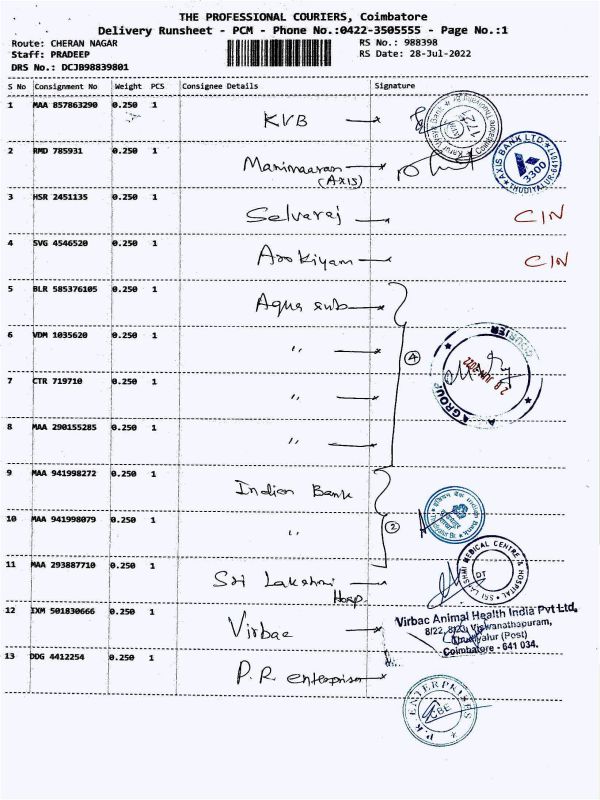 THE PROFESSIONAL COURIERS, Coimbatore
Delivery Runsheet - PCM - Phone No.:0422-3505555 - Page No.:1
Route: CHERAN NAGAR
RS No.: 988398
Staff: PRADEEP
RS Date: 28-Jul-2022
DRS No.: DCJB98839801
S No Consignment No Weight PCS Consignee Details Signature
1 MAA 857863290 0.250 1 KVB
2 RMD 785931 0.250 1 Manimaaran
(AXIS)
AXIS BANK LTD.
3300
THUDIYALUR-641017
3 HSR 2451135 0.250 1 Selvaraj CIN
4 SVG 4546520 0.250 1 Arokiyam CIN
5 BLR 585376105 0.250 1 Aqua sub
6 VDM 1035620 0.250 1 "
4
COURIER
AQUA GROUP
7 CTR 719710 0.250 1 "
8 MAA 290155285 0.250 1 "
9 MAA 941998272 0.250 1 Indian Bank
10 MAA 941998079 0.250 1 "
2
11 MAA 293887710 0.250 1 Sri Lakshmi
Hosp.
SRI LAKSHMI MEDICAL CENTRE & HOSPITAL
OT
12 IXM 501830666 0.250 1 Virbac
Virbac Animal Health India Pvt Ltd.
8/22, 8/23, Viswanathapuram,
Thudiyalur (Post)
Coimbatore - 641 034.
13 DDG 4412254 0.250 1 P.R. enterprises
ENTERPRISES
CBE